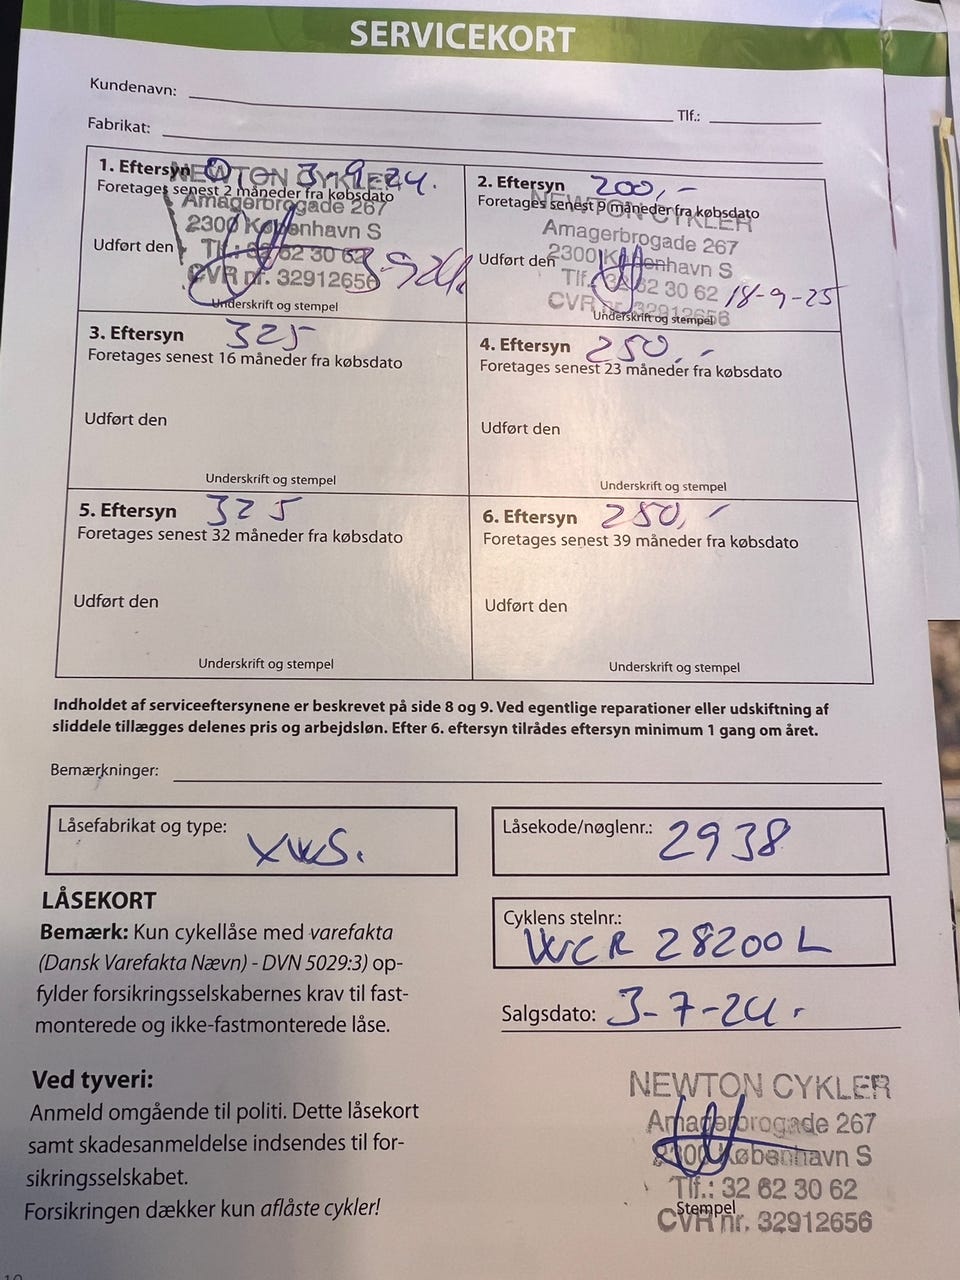 SERVICEKORT
Kundenavn:
Tlf.:
Fabrikat:
1. Eftersyn 0 3-9-24.
Foretages senest 2 måneder fra købsdato
NEWTON CYKLER
Amagerbrogade 267
2300 København S
Udført den
Tlf.: 32 62 30 62
3-9-24
CVR nr. 32912656
Underskrift og stempel
2. Eftersyn 200,-
Foretages senest 9 måneder fra købsdato
NEWTON CYKLER
Amagerbrogade 267
Udført den
2300 København S
Tlf.: 32 62 30 62
18-9-25
CVR nr. 32912656
Underskrift og stempel
3. Eftersyn 325
Foretages senest 16 måneder fra købsdato
Udført den
Underskrift og stempel
4. Eftersyn 250,-
Foretages senest 23 måneder fra købsdato
Udført den
Underskrift og stempel
5. Eftersyn 325
Foretages senest 32 måneder fra købsdato
Udført den
Underskrift og stempel
6. Eftersyn 250,-
Foretages senest 39 måneder fra købsdato
Udført den
Underskrift og stempel
Indholdet af serviceeftersynene er beskrevet på side 8 og 9. Ved egentlige reparationer eller udskiftning af
sliddele tillægges delenes pris og arbejdsløn. Efter 6. eftersyn tilrådes eftersyn minimum 1 gang om året.
Bemærkninger:
Låsefabrikat og type:
Låsekode/nøglenr.: 2938
LÅSEKORT
Bemærk: Kun cykellåse med varefakta
(Dansk Varefakta Nævn) - DVN 5029:3) op-
fylder forsikringsselskabernes krav til fast-
monterede og ikke-fastmonterede låse.
Cyklens stelnr.:
WCR 28200L
Salgsdato: 3-7-24.
Ved tyveri:
Anmeld omgående til politi. Dette låsekort
samt skadesanmeldelse indsendes til for-
sikringsselskabet.
Forsikringen dækker kun aflåste cykler!
NEWTON CYKLER
Amagerbrogade 267
2300 København S
Tlf.: 32 62 30 62
Stempel
CVR nr. 32912656
10